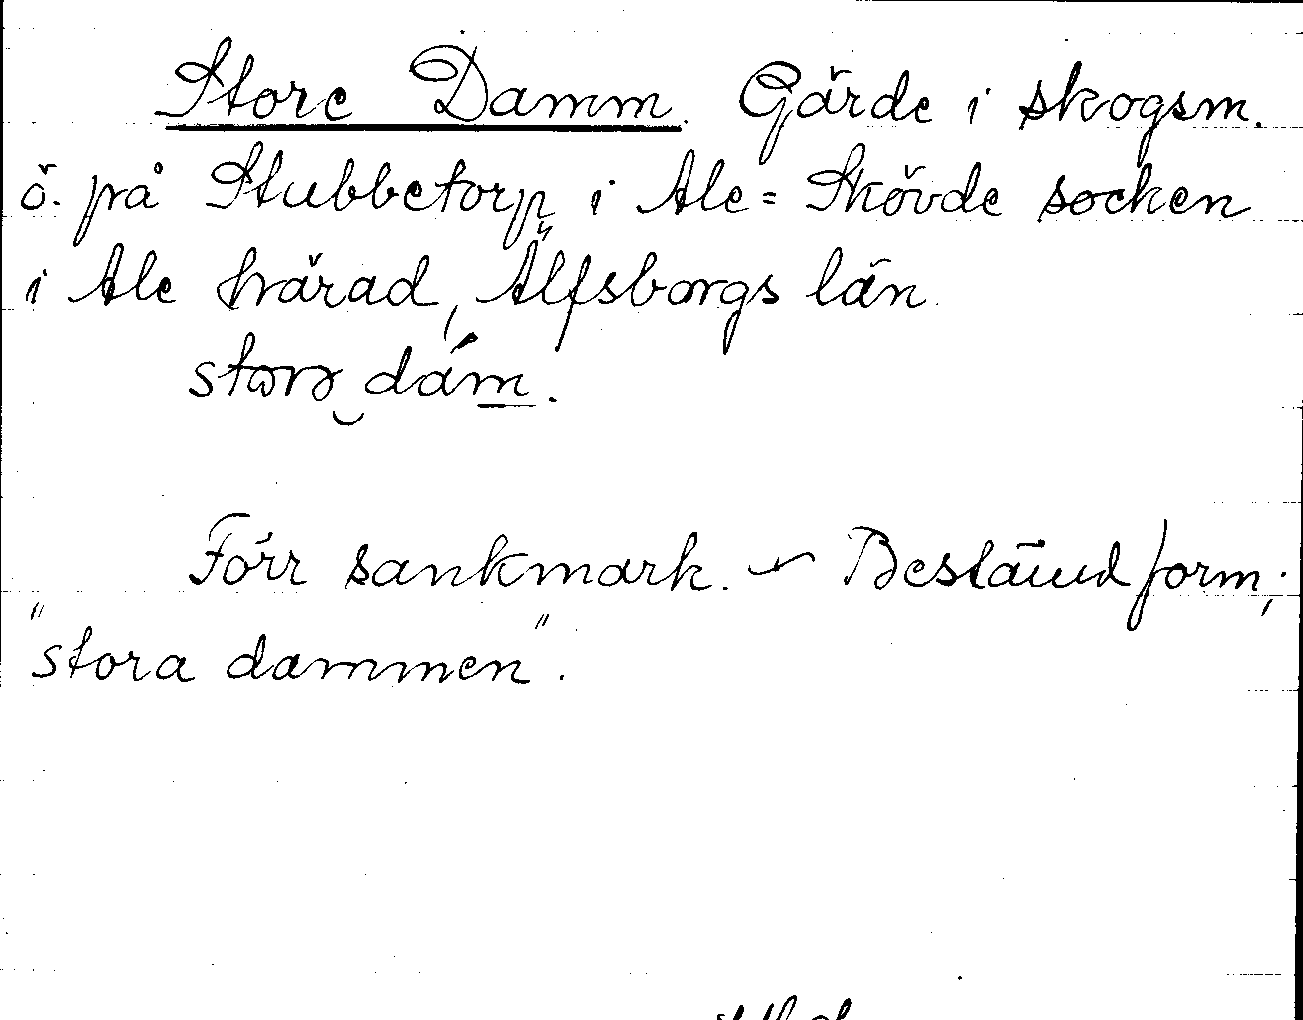 Store Damm. Gärde i skogsm.
ö. på Stubbetorp i Ale-Skövde socken
i Ale härad, Älfsborgs län.
dám.
Förr sankmark. – Bestämd form;
"stora dammen".